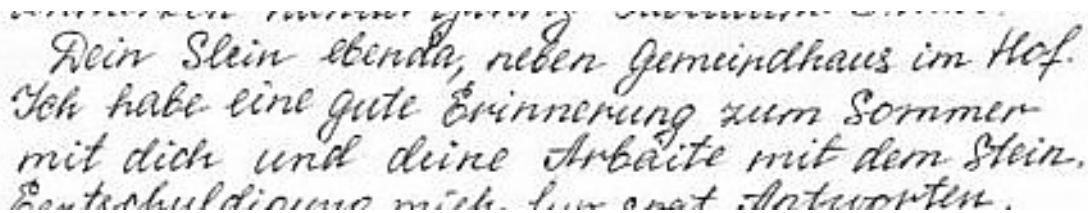 Dein Stein ebenda, neben Gemeindhaus im Hof.
Ich habe eine gute Erinnerung zum Sommer
mit dich und deine Arbaite mit dem Stein.
Eentschuldigung mich Antworten.